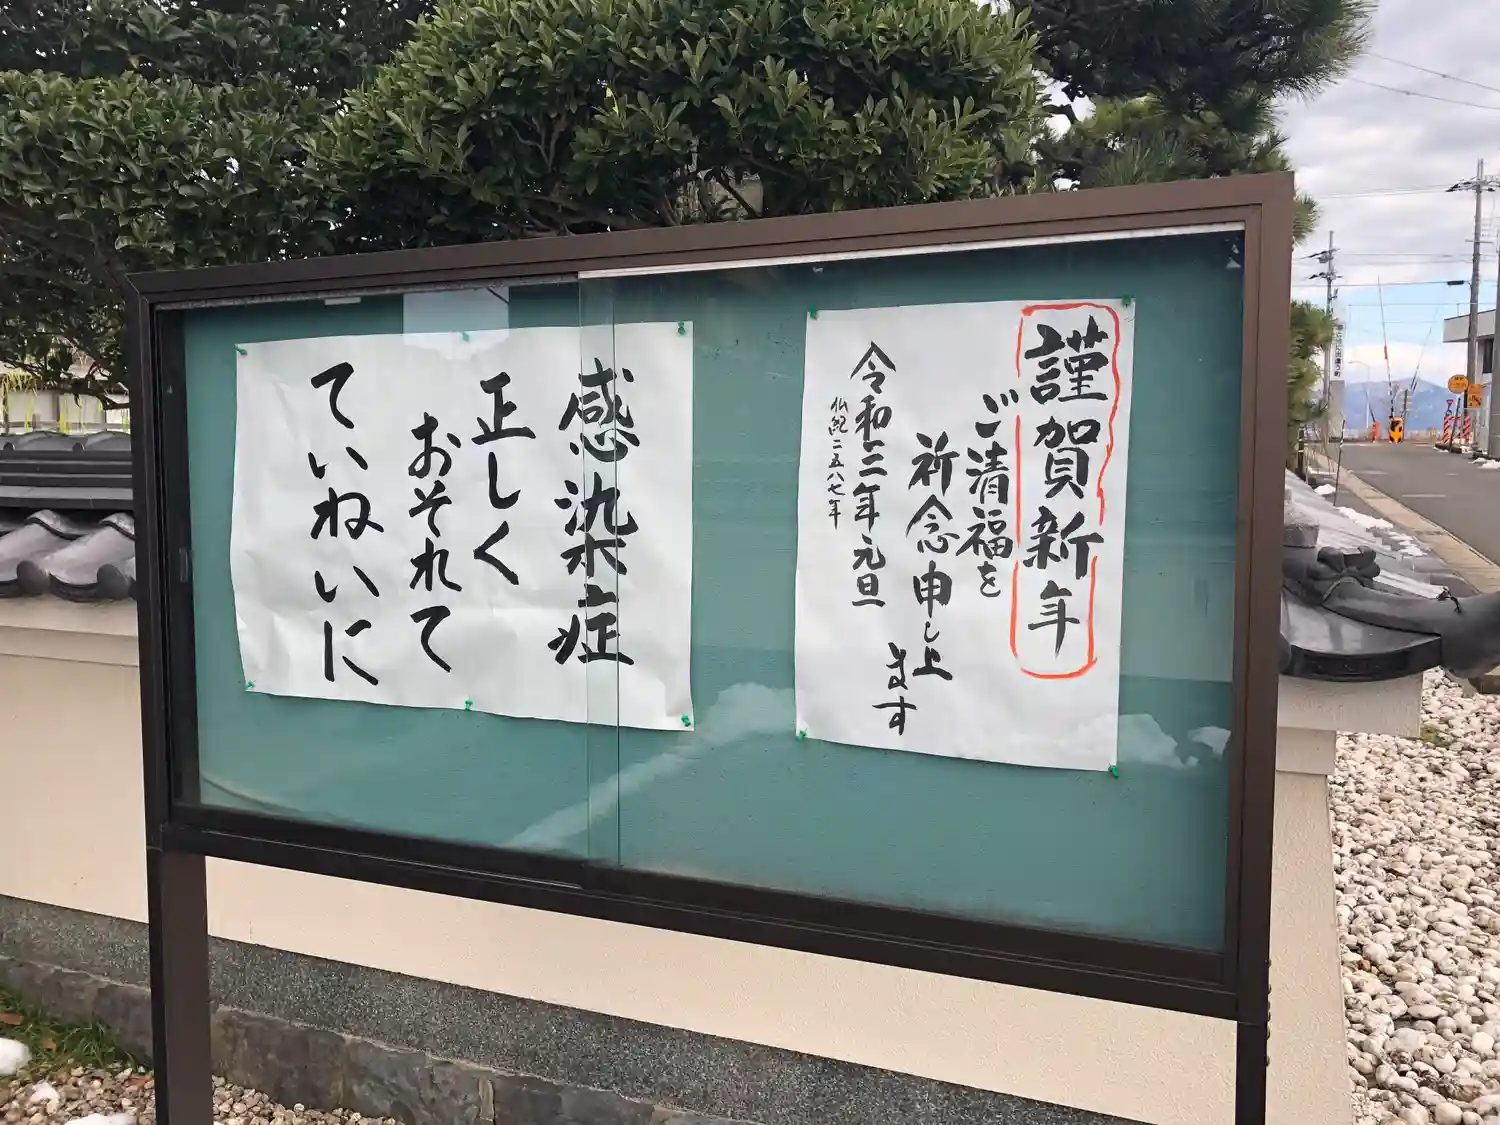 謹賀新年
ご清福を
祈念申し上
ます
令和三年元旦
仏紀二五八七年
感染症
正しく
おそれて
ていねいに